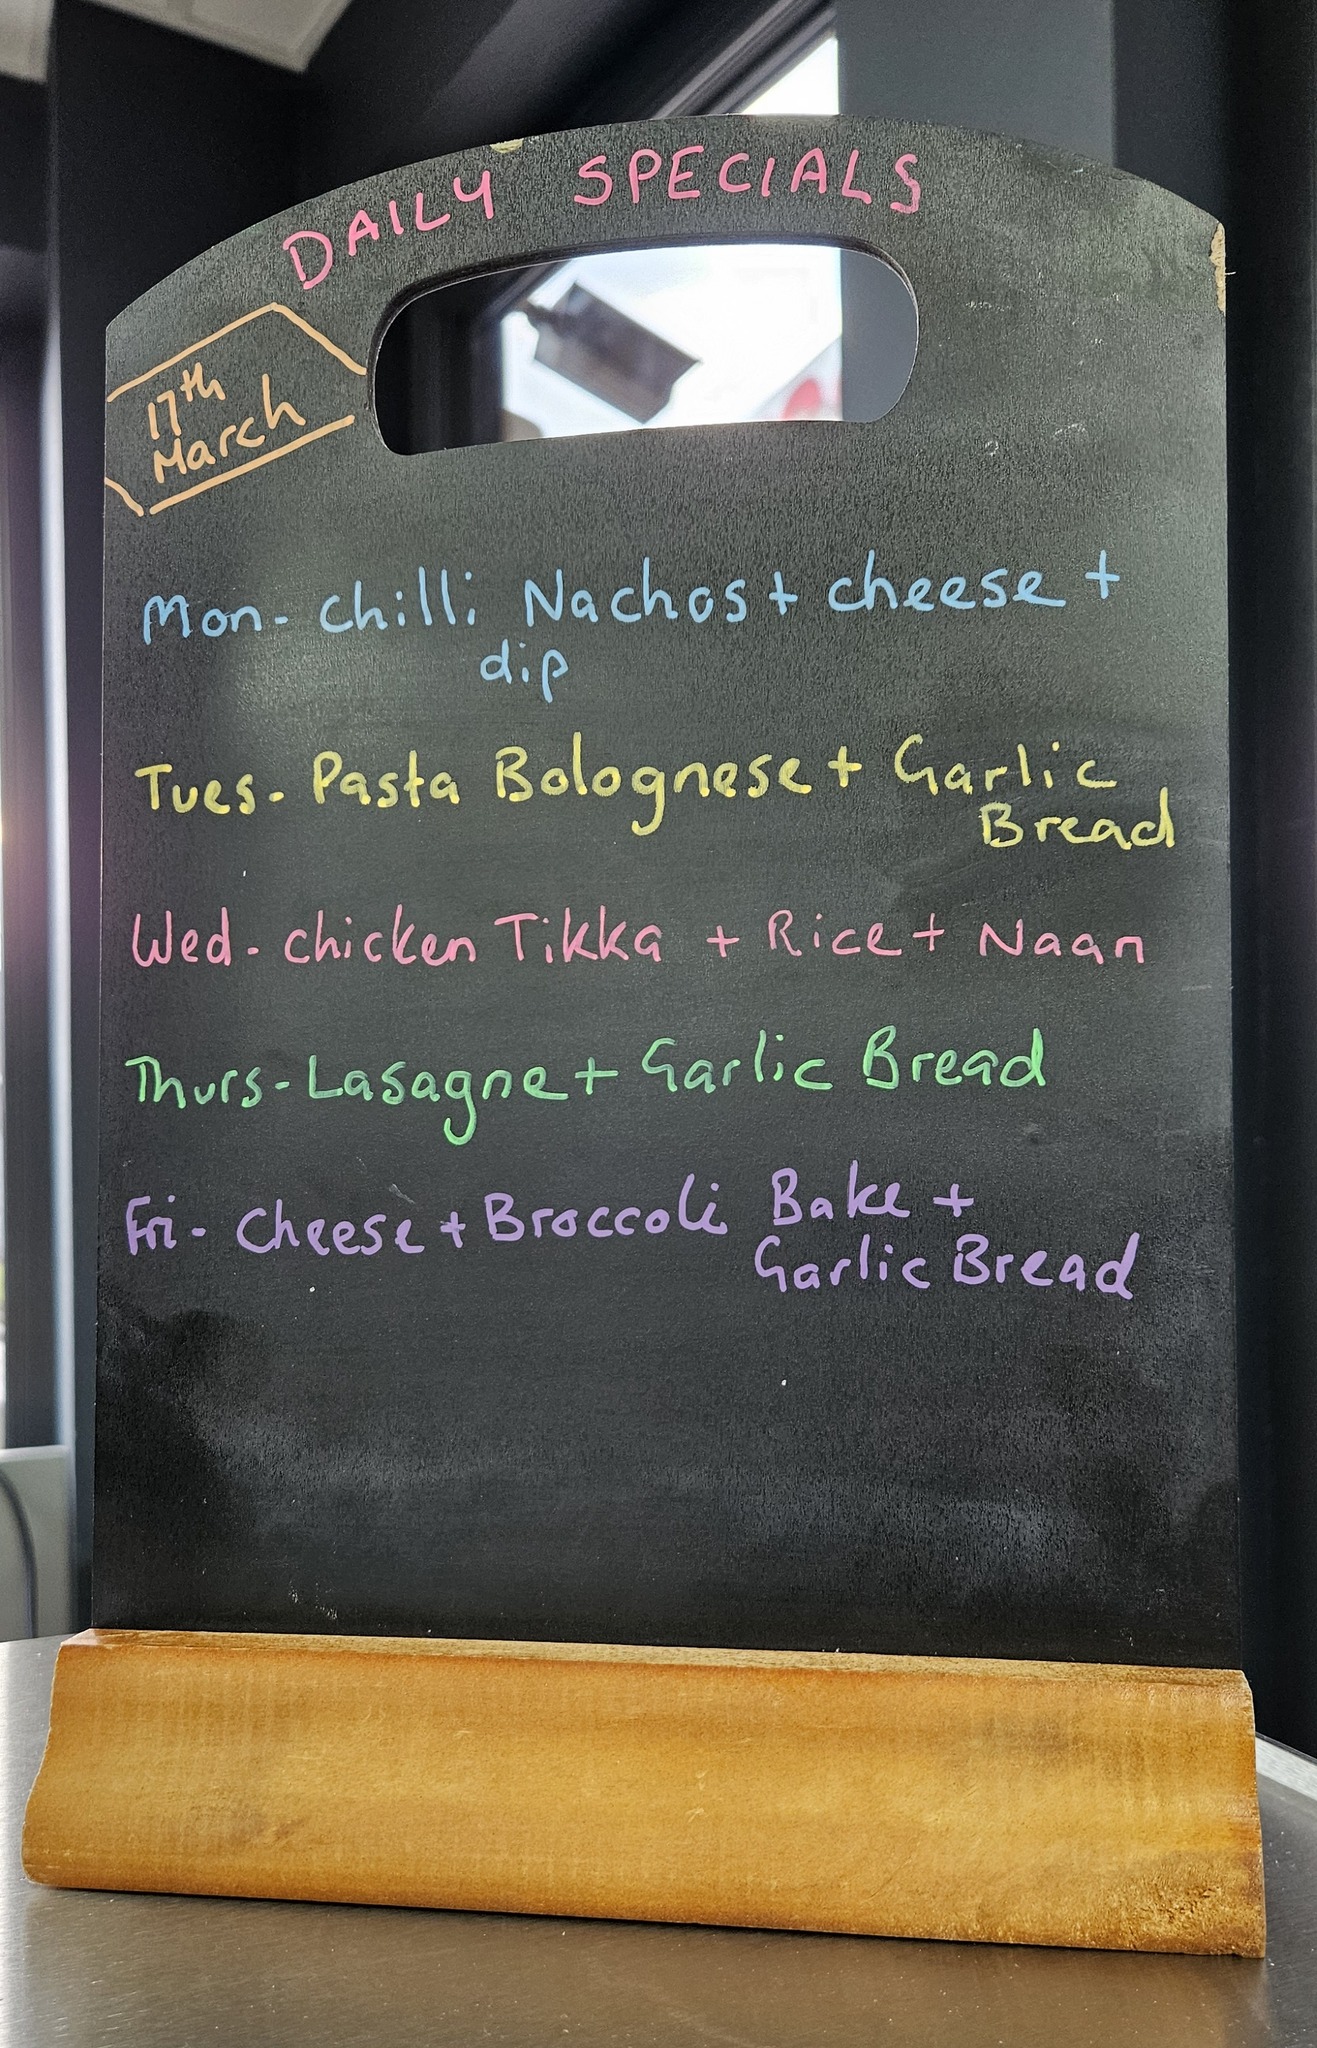 DAILY SPECIALS
17th
March
Mon- Chilli Nachos + cheese +
dip
Tues- Pasta Bolognese + Garlic
Bread
Wed- chicken Tikka + Rice + Naan
Thurs- Lasagne + Garlic Bread
Fri- Cheese + Broccoli Bake +
Garlic Bread